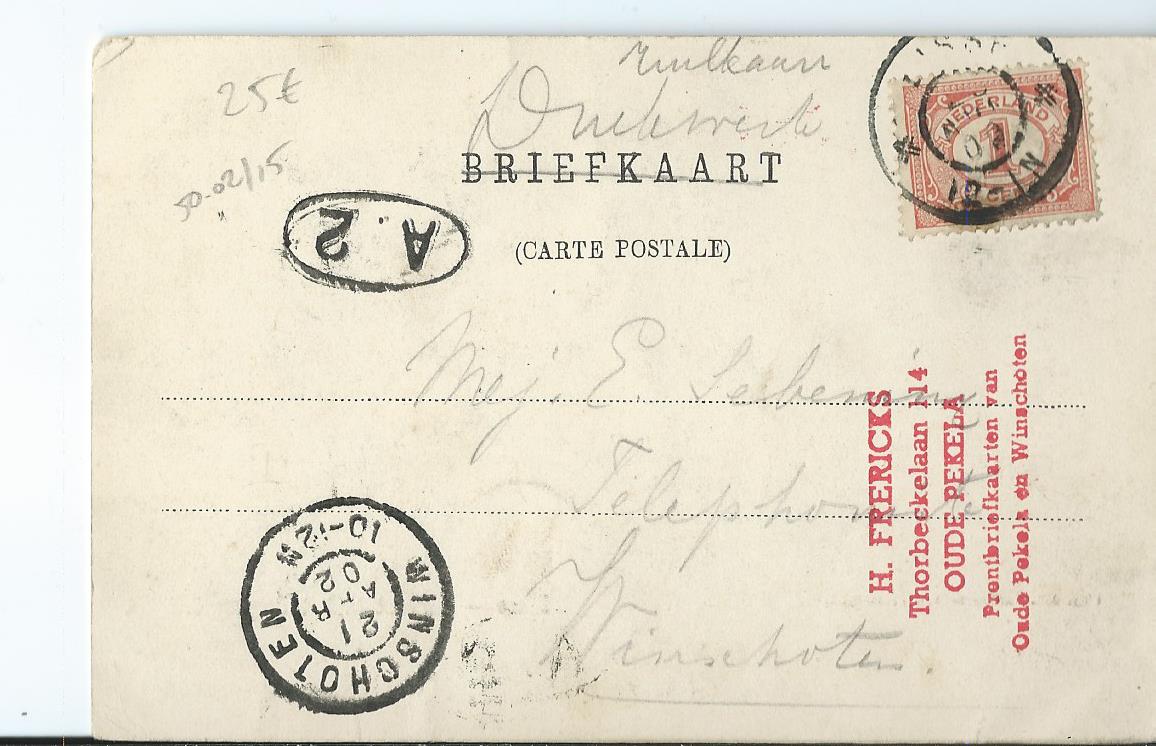 25€
50-02/15
Drukwerk
BRIEFKAART
(CARTE POSTALE)
A. 2
NEDERLAND
1
CENT
12-1N
Mej. E.
Telephoniste
Winschoten.
H. FRERICKS
Thorbeckelaan 114
OUDE PEKELA
Prentbriefkaarten van
Oude Pekela en Winschoten
WINSCHOTEN
21
APR
02
10-12N